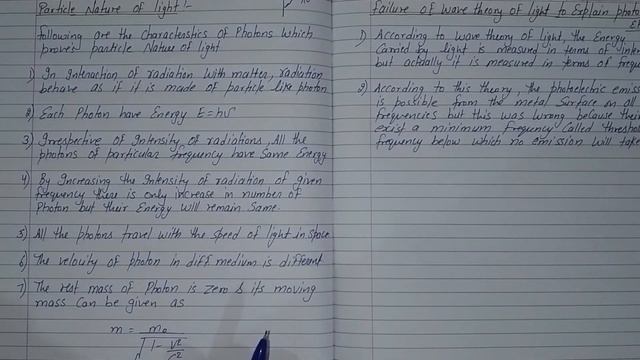 Particle Nature of light :-
following are the Characteristics of Photons which
proves particle Nature of light
1) In Interaction of radiation with matter, radiation
behave as if it is made of particle like photon
2) Each Photon have Energy E=hν
3) Irrespective of Intensity of radiations, All the
photons of particular frequency have Same Energy
4) By Increasing the Intensity of radiation of given
frequency there is only increase in number of
Photon but their Energy will remain Same.
5) All the photons travel with the speed of light in space
6) The velocity of photon in diff medium is different
7) The rest mass of Photon is zero & its moving
mass Can be given as
m = m₀
√1 - v²
c²
failure of wave theory of light to Explain photo
1) According to wave theory of light, the Energy
Carried by light is measured in terms of inten
but actually it is measured in terms of freque
2) According to this theory, the photoelectric emiss
is possible from the metal Surface on all
frequencies but this was wrong because their
exist a minimum frequency Called thresho
frequency below which no emission will take